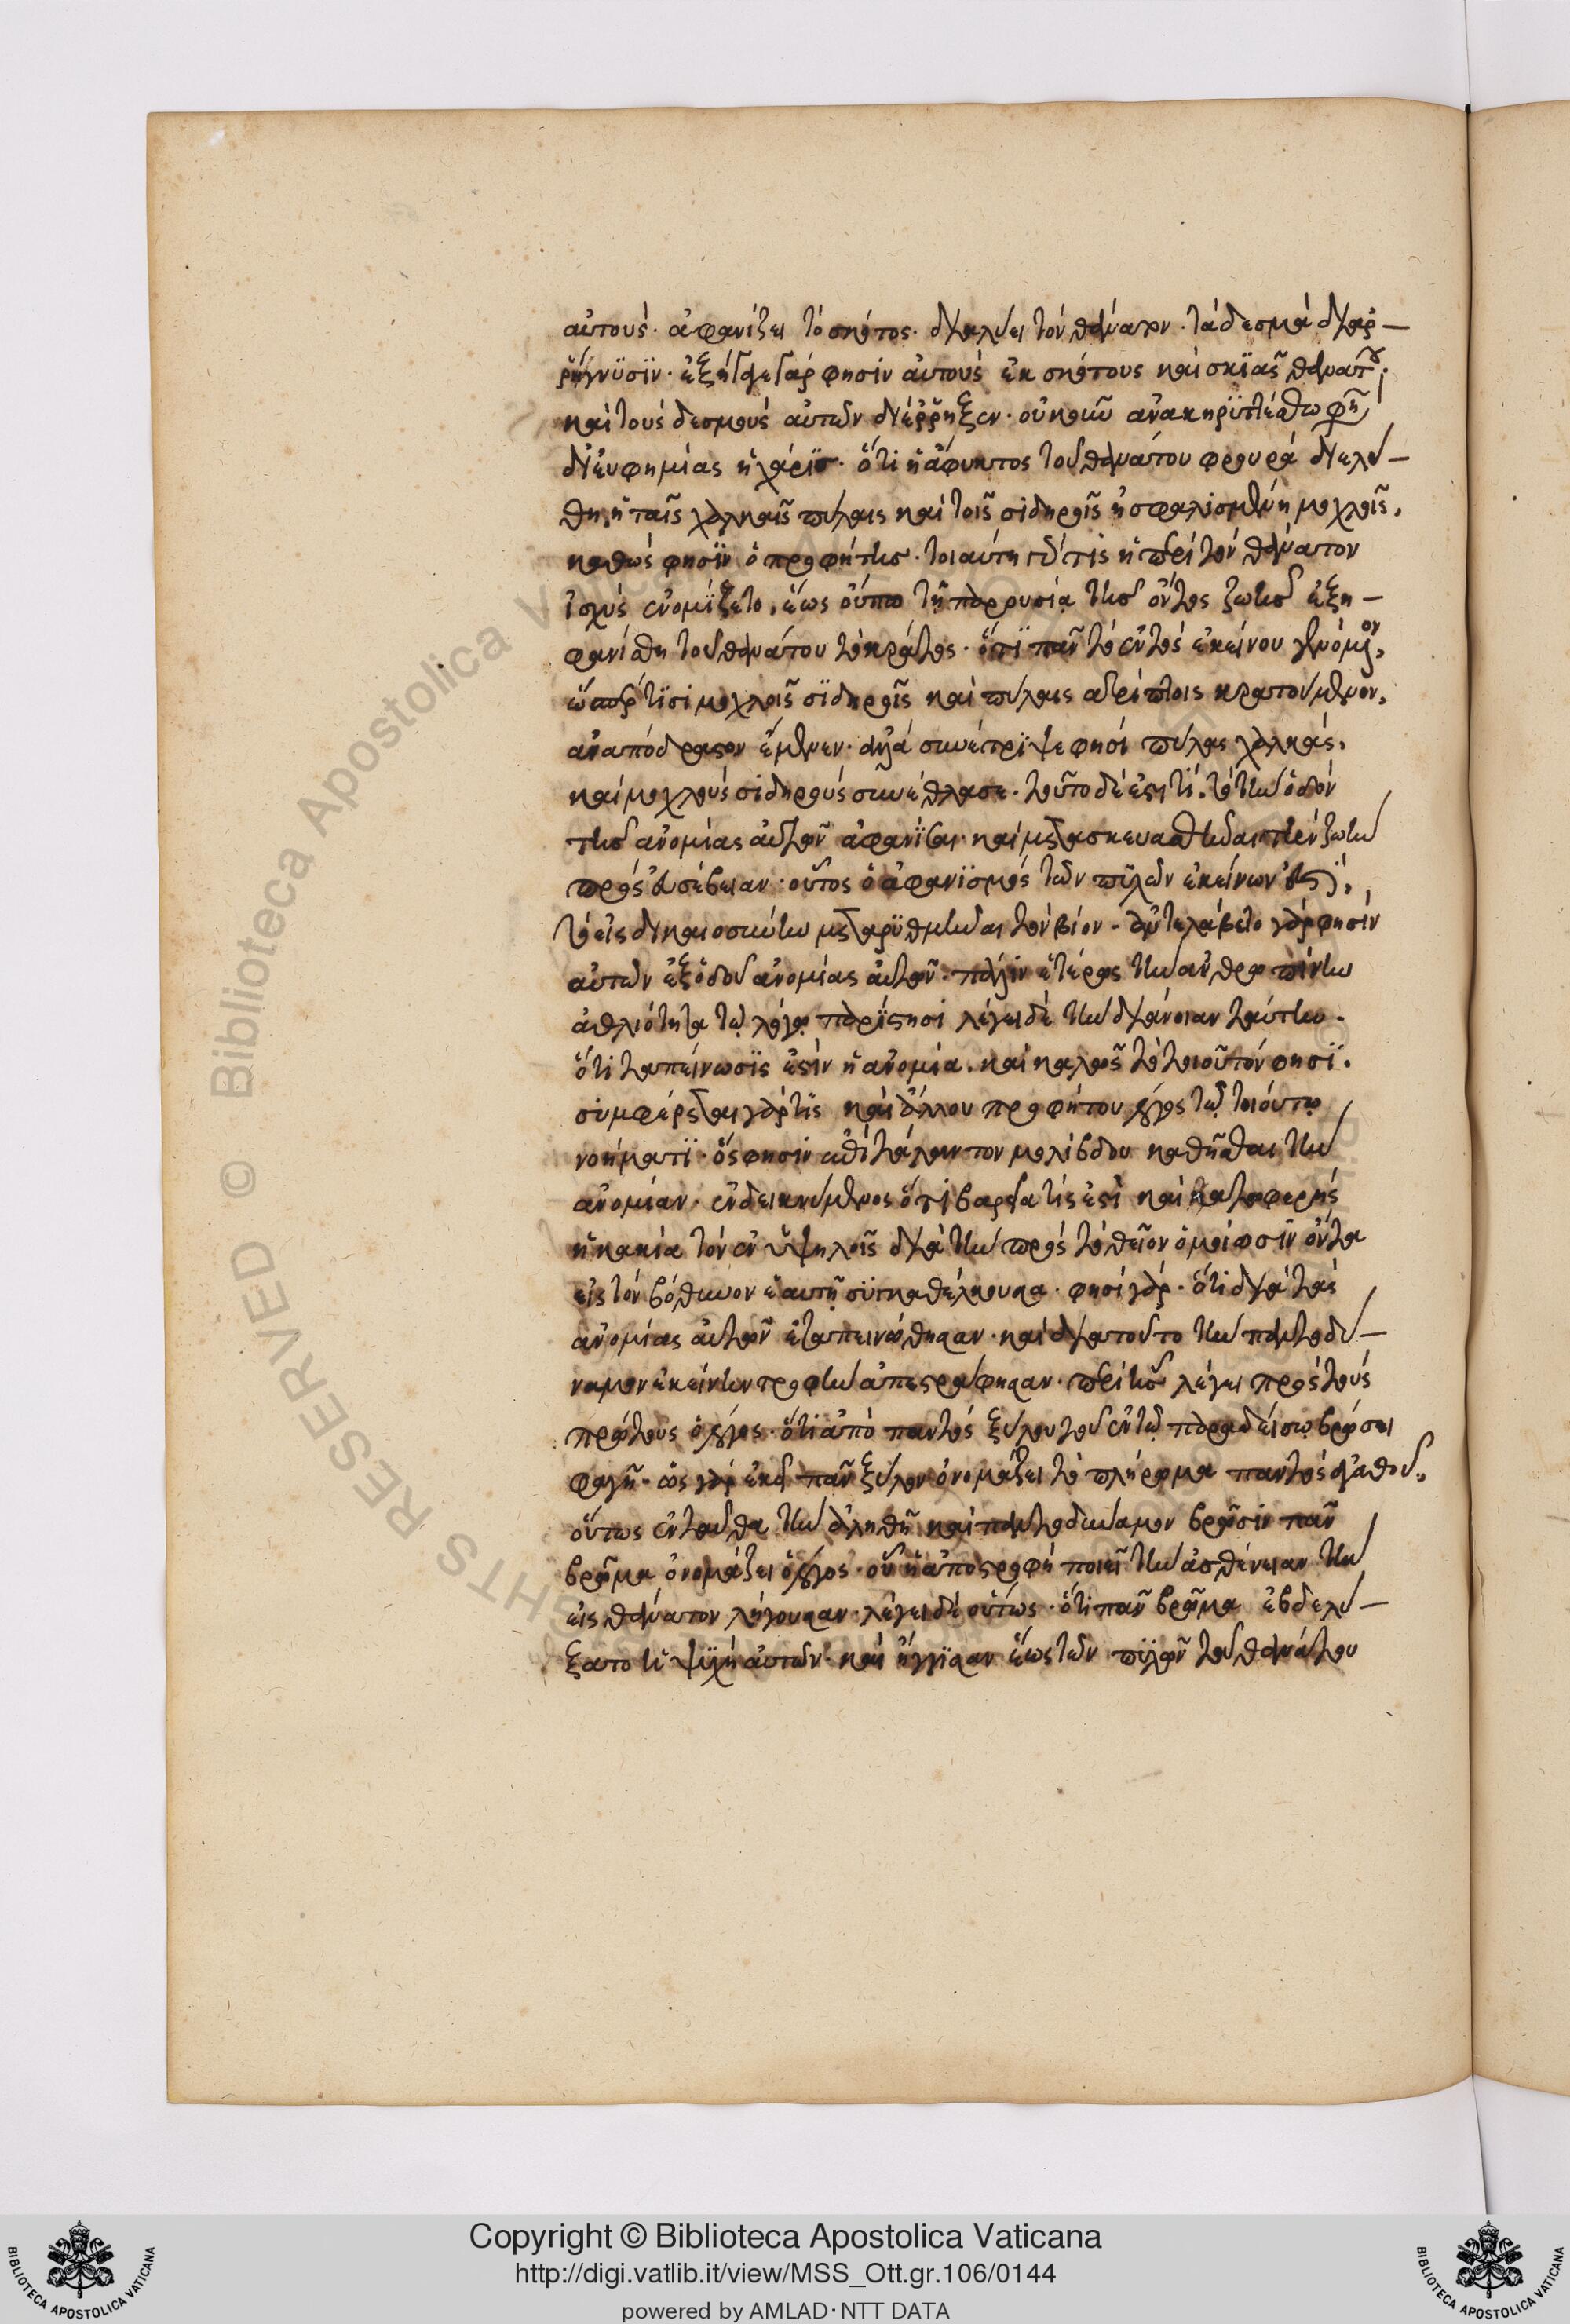 αὐτούς· ἀφανίζει τὸ σκότος· διαλύει τὸν θάνατον· τὰ δεσμὰ διαρ–
ρήγνϋσϊν· ἐξήγαγε γάρ φησιν αὐτοὺς ἐκ σκότους καὶ σκϊᾶς θανάτου·
καὶ τοὺς δεσμοὺς αὐτῶν διέρρηξεν· οὐκοῦν ἀνακηρϋττέσθω φησὶ
δι' εὐφημίας ἡ χάρϊς· ὅτι ἡ ἄφυκτος τοῦ θανάτου φρουρὰ διελύ–
θη, ἡ ταῖς χαλκαῖς πύλαις καὶ τοῖς σιδηροῖς ἠσφαλισμένη μοχλοῖς,
καθώς φησϊν ὁ προφήτης· τοιαύτη γάρ τις ἡ περὶ τὸν θάνατον
ἰσχὺς ἐνομΐζετο, ἕως οὔπω τῇ παρουσίᾳ τῆς ὄντος ζωῆς ἐξη–
φανίσθη τοῦ θανάτου τὸ κράτος· ὅτϊ πᾶν τὸ ἐντὸς ἐκείνου γενόμενον,
ὥσπερ τϊσὶ μοχλοῖς σϊδηροῖς καὶ πύλαις ἀτρίπτοις κρατούμενον,
ἀναπόδραστον ἔμενεν· ἀλλὰ συνέτρϊψε φησὶ πύλας χαλκάς,
καὶ μοχλοὺς σιδηροὺς συνέθλασε· τοῦτο δέ ἐστι τί, τὸ τὴν ὁδὸν
τῆς ἀνομίας αὐτῶν ἀφανΐσαι· καὶ μετασκευασθῆναι τὴν ζωὴν
πρὸς εὐσέβειαν· οὗτος ὁ ἀφανϊσμὸς τῶν πϋλῶν ἐκείνων ἐστϊ,
τὸ εἰς δικαιοσύνην μεταρϋθμηθῆναι τὸν βίον· ἀντελάβετο γάρ φησιν
αὐτῶν ἐξ ὁδοῦ ἀνομίας αὐτῶν· πάλιν ἑτέρως τὴν ἀνθρωπίνην
ἀθλιότητα τῷ λόγῳ παρΐστησι λέγει δὲ τὴν διάνοιαν ταύτην·
ὅτι ταπείνωσϊς ἐστὶν ἡ ἀνομία· καὶ καλῶς τὸ τοιοῦτόν φησϊ·
συμφέρεται γάρ τϊς καὶ ἄλλου προφήτου λόγος τῷ τοιούτῳ
νοήματϊ· ὅς φησιν ἐπὶ τάλαντον μολίβδου καθῆσθαι τὴν
ἀνομίαν· ἐνδεικνύμενος ὅτι βαρεῖα τίς ἐστὶ καὶ καταφερὴς
ἡ κακία τὸν ἐν ὑψηλοῖς διὰ τὴν πρὸς τὸ θεῖον ὁμοίωσϊν ὄντα
εἰς τὸν βόθυνον ἑαυτῇ συγκαθέλκουσα· φησὶ γάρ· ὅτι διὰ τὰς
ἀνομίας αὐτῶν ἐταπεινώθησαν· καὶ διατοῦτο τὴν παντοδύ–
ναμον ἐκείνην τροφὴν ἀπεστράφησαν· περὶ ἧς λέγει πρὸς τοὺς
πρώτους ὁ λόγος· ὅτϊ ἀπὸ παντὸς ξύλου τοῦ ἐν τῷ παραδείσῳ βρώσει
φαγῇ· ὡς γὰρ ἐκεῖ πᾶν ξύλον ὀνομάζει τὸ πλήρωμα παντὸς ἀγαθοῦ,
οὕτως ἐνταῦθα τὴν ἀληθῆ καὶ παντοδύναμον βρῶσιν πᾶν
βρῶμα ὀνομάζει ὁ λόγος· οὗ ἡ ἀποστροφὴ ποιεῖ τὴν ἀσθένειαν τὴν
εἰς θάνατον λήγουσαν· λέγει δὲ οὕτως· ὅτι πᾶν βρῶμα ἐβδελύ–
ξατο ἡ ψϋχὴ αὐτῶν· καὶ ἤγγϊσαν ἕως τῶν πϋλῶν τοῦ θανάτου
Copyright © Biblioteca Apostolica Vaticana
http://digi.vatlib.it/view/MSS_Ott.gr.106/0144
powered by AMLAD·NTT DATA